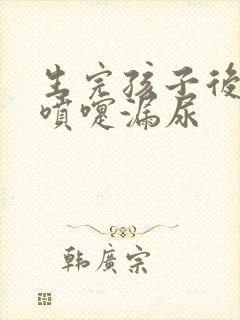 生完孩子後
噴嚏漏尿
韩廣宗